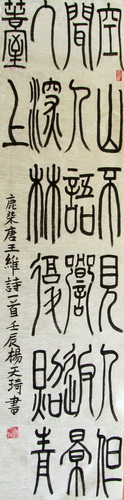 空山不見人但
聞人語響返景
入深林復照青
苔上
鹿柴唐王維詩一首壬辰楊天琦書